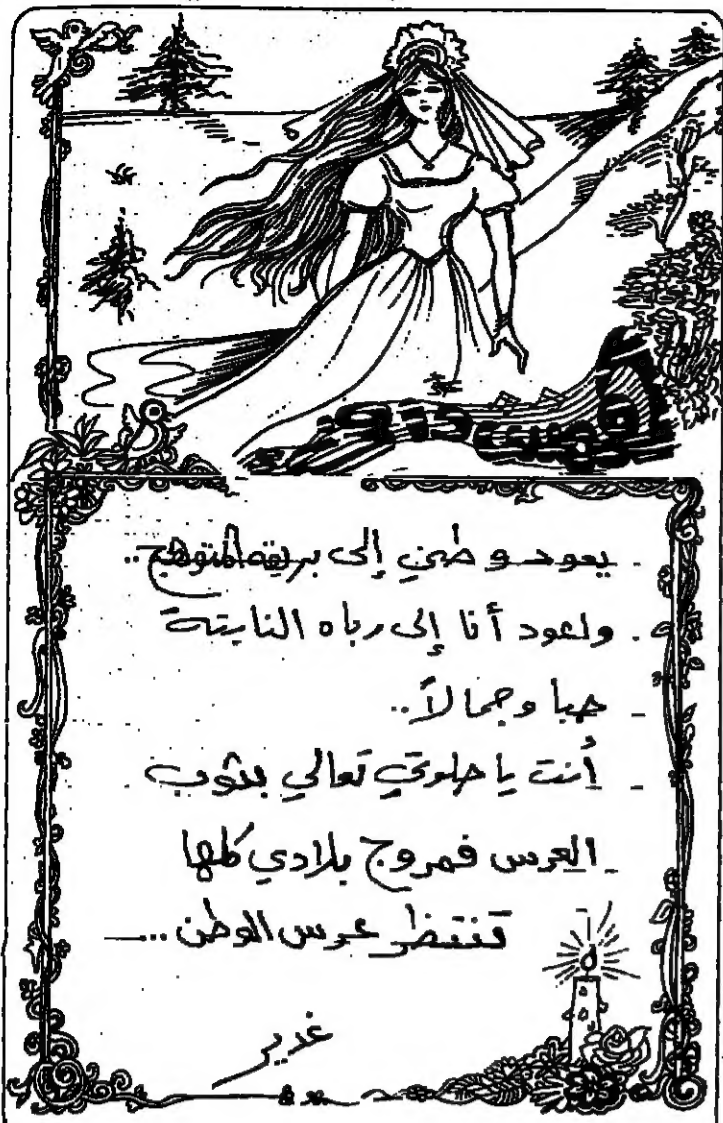 قوس قزح
يعود وطني إلى بريقه المتوهج..
ولعود أنا إلى رباه النابتة
حبا وجمالاً..
أنت يا حلوتي تعالي بثوب
العرس فمروج بلادي كلها
تنتظر عرس الوطن...
غدير